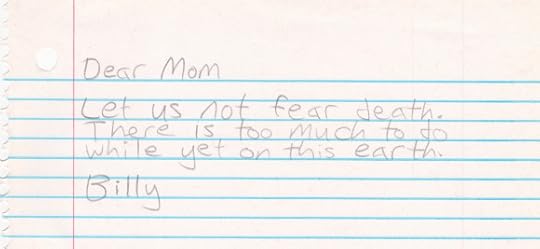 Dear Mom
Let us not fear death.
There is too much to do
while yet on this earth.
Billy